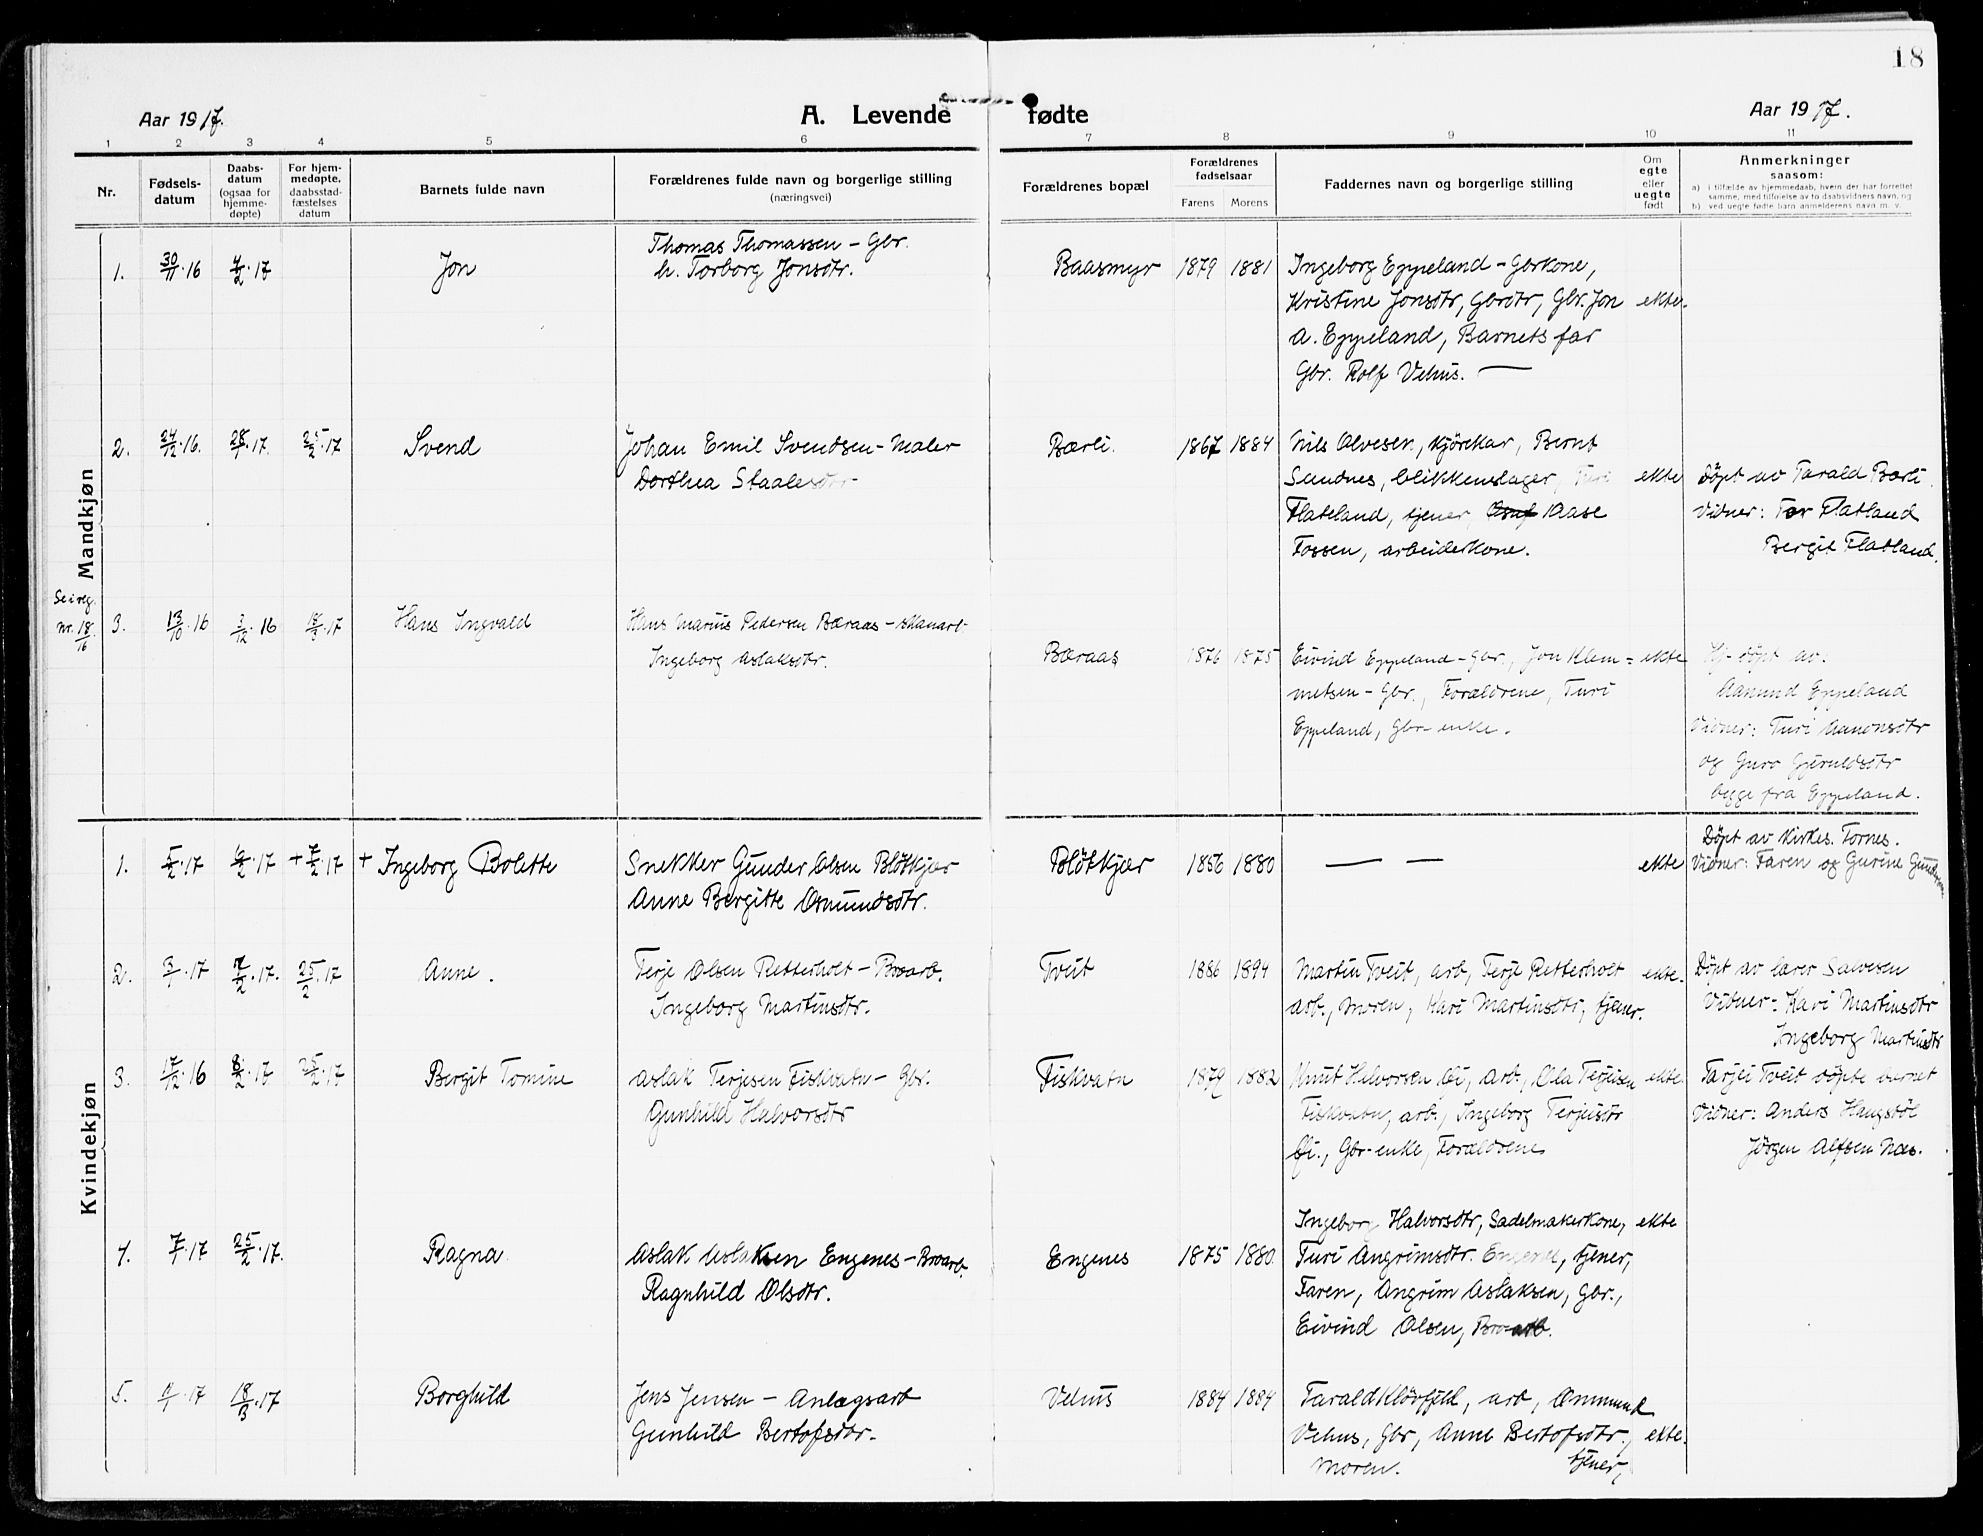 18
Aar 1917.
A. Levende fødte
Aar 1917.
1 2 3 4 5 6 7 8 9 10 11
Nr.
Fødsels-
datum
Daabs-
datum
(ogsaa for
hjemme-
døpte)
For hjem-
medøpte,
daabsstad-
fæstelses
datum
Barnets fulde navn
Forældrenes fulde navn og borgerlige stilling
(næringsvei)
Forældrenes bopæl
Forældrenes
fødselsaar
Farens Morens
Faddernes navn og borgerlige stilling
Om
egte
eller
uegte
født
Anmerkninger
saasom:
a) i tilfælde av hjemmedaab, hvem der har forrettet
samme, med tilføielse av to daabsvidners navn, og
b) ved uegte fødte barn anmelderens navn m. v.
Mandkjøn
1. 30/11·16 4/2·17 Jon
Thomas Thomassen – Gbr.
h. Torborg Jonsdtr.
Baasmyr 1879 1881
Ingeborg Eppeland – Gbrkone,
Kristine Jonsdtr, Gbrdtr, Gbr. Jon
A. Eppeland, Barnets far
Gbr. Rolf Vehus. —
ekte.
2. 24/12·16. 28/1·17. 25/2·17 Svend
Johan Emil Svendsen – Maler
Dorthea Staalesdtr
Bærli. 1867 1884
Nils Olvesen, kjørekar, Bernt
Sundnes, blikkenslager, Turi
Flateland, tjener, Aase
Fossen, arbeiderkone.
ekte
Döpt av Tarald Bærli.
Vidner: Tor Flatland
Bergit Flatland.
Se i reg.
nr. 18/16
3. 13/10·16 3/12·16 18/3·17 Hans Ingvald
Hans Marius Pedersen Bæraas –
Ingeborg Aslaksdtr.
Bæraas 1876 1875
Eivind Eppeland – Gbr., Jon Klem=
metsen – Gbr., Forældrene, Turi
Eppeland, Gbr–enke.
ekte
Hj–döpt av:
Aanund Eppeland
Vidner: Turi Aamonsdtr
og Guro Gjeruldsdtr
begge fra Eppeland.
Kvindekjøn
1. 5/2·17 6/2·17 + 7/2·17 + Ingeborg Bolette
Snekker Gunder Olsen Blötkjær
Anne Bergitte Osmundsdtr.
Blötkjær 1856 1880
— —
ekte
Döpt av kirkes. Fornes.
Vidner: Faren og Gurine Gundersen
2. 3/1·17 7/2·17. 25/2·17 Anne.
Terje Olsen Retterholt – Broarb.
Ingeborg Martinsdtr.
Tveit 1886 1894
Martin Tveit, arb, Terje Retterholt
arb., Moren, Kari Martinsdtr, tjener.
ekte.
Döpt av lærer Salvesen
Vidner: Kari Martinsdtr
Ingeborg Martinsdtr
3. 17/12·16 8/2·17 25/2·17 Bergit Tomine
Aslak Terjesen Fiskvatn – Gbr.
Gunhild Halvorsdtr
Fiskvatn 1879 1882
Knut Halvorsen Li, arb., Ola Terjeisen
Fiskvatn, arb., Ingeborg Terjeisdtr
Li., Gbr–enke, Forældrene
ekte.
Tarjei Tveit döpte barnet
Vidner: Anders Haugstöl
Jörgen Alfsen Næs.
4. 7/1·17 25/2·17. Ragna
Aslak Aslaksen Engenes – Broarb.
Ragnhild Olsdtr.
Engenes 1875 1880.
Ingeborg Halvorsdtr, Sadelmakerkone,
Turi Angrimsdtr. Engenes, tjener,
Faren, Angrim Aslaksen, Gbr.,
Eivind Olsen, Broarb.
ekte
5. 11/1·17 18/3·17 Borghild
Jens Jensen – Anlægsarb
Gunhild Bertofsdtr.
Vehus 1884 1884
Tarald Klövfjeld, arb, Ommund
Vehus, Gbr, Anne Bertofsdtr.,
Moren. tjener,
ekte.